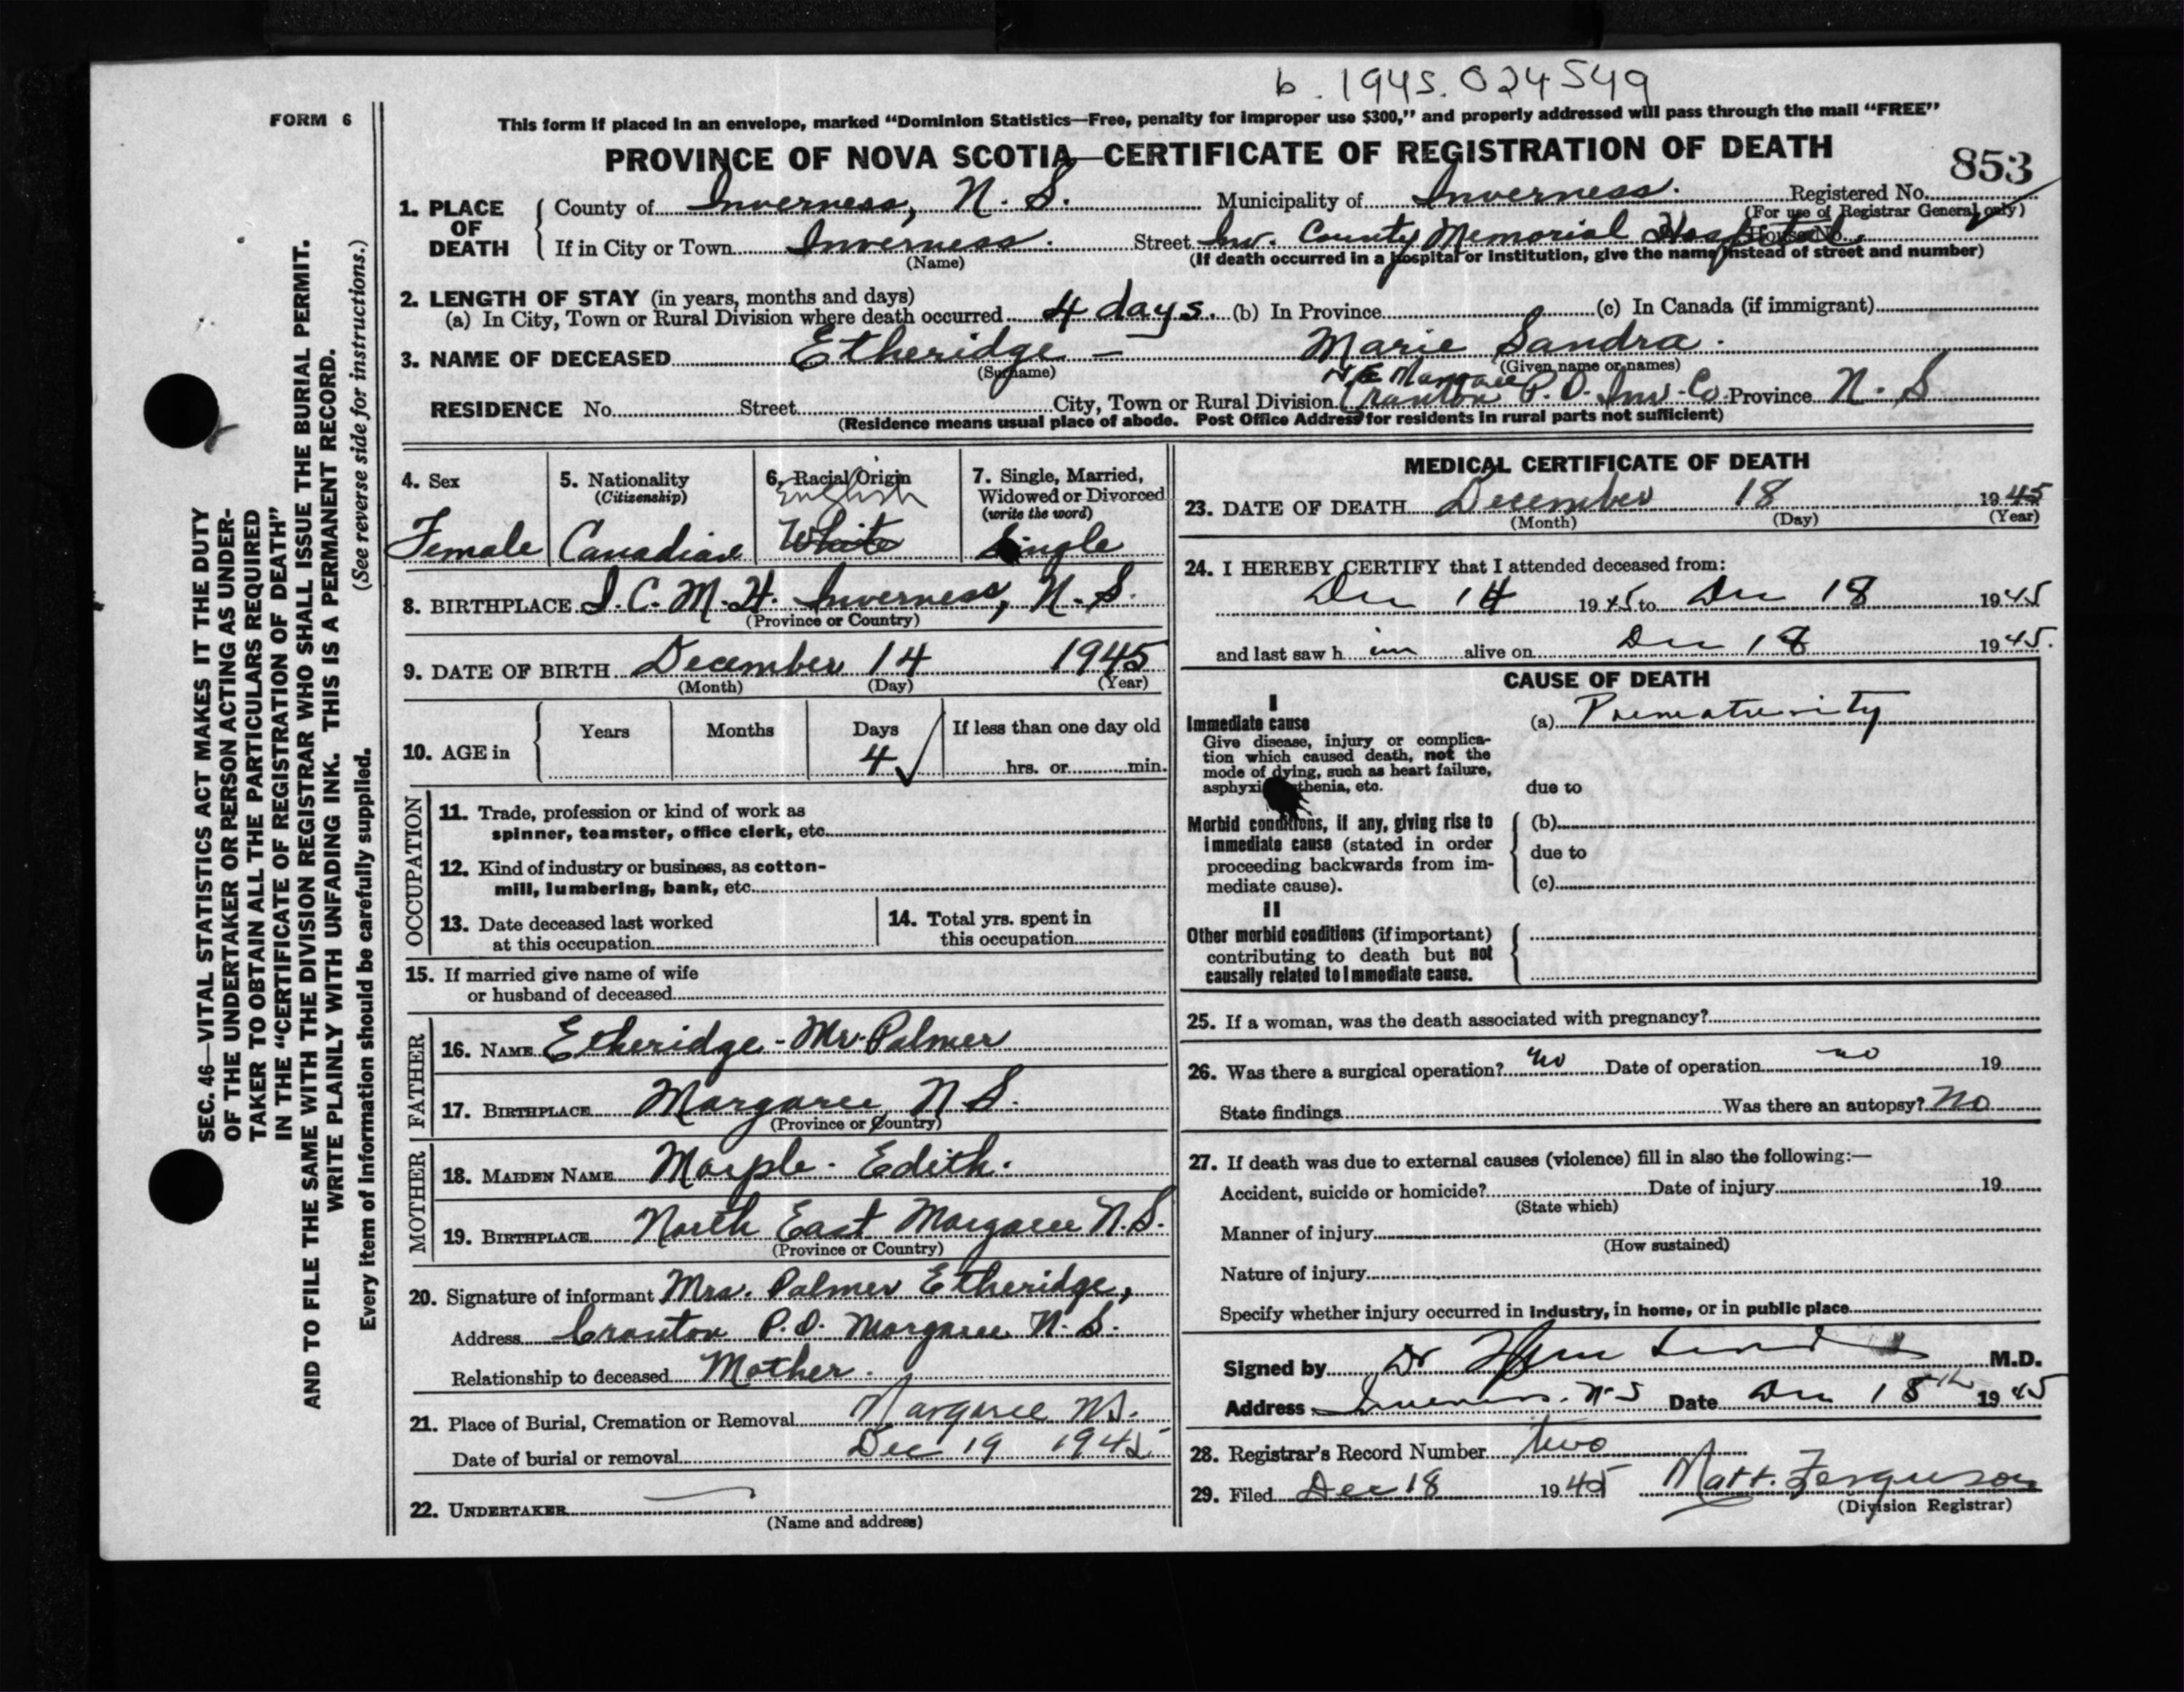 b. 1945. 024549
FORM 6
This form if placed in an envelope, marked “Dominion Statistics—Free, penalty for improper use $300,” and properly addressed will pass through the mail “FREE”
PROVINCE OF NOVA SCOTIA—CERTIFICATE OF REGISTRATION OF DEATH
853
1. PLACE OF DEATH
County of Inverness, N. S. Municipality of Inverness. Registered No.
(For use of Registrar General only)
If in City or Town Inverness. Street Inv. County Memorial Hospital. House No.
(Name) (If death occurred in a hospital or institution, give the name instead of street and number)
2. LENGTH OF STAY (in years, months and days)
(a) In City, Town or Rural Division where death occurred 4 days. (b) In Province (c) In Canada (if immigrant)
3. NAME OF DECEASED Etheridge — Marie Sandra.
(Surname) (Given name or names)
N.E Margaree
RESIDENCE No. Street City, Town or Rural Division Cranton P.O. Inv. Co Province N. S
(Residence means usual place of abode. Post Office Address for residents in rural parts not sufficient)
4. Sex
Female
5. Nationality
(Citizenship)
Canadian
6. Racial Origin
English
White
7. Single, Married,
Widowed or Divorced
(write the word)
Single
8. BIRTHPLACE I. C. M. H. Inverness, N. S.
(Province or Country)
9. DATE OF BIRTH December 14 1945
(Month) (Day) (Year)
10. AGE in
Years Months Days If less than one day old
4 hrs. or min.
OCCUPATION
11. Trade, profession or kind of work as
spinner, teamster, office clerk, etc.
12. Kind of industry or business, as cotton-
mill, lumbering, bank, etc.
13. Date deceased last worked
at this occupation
14. Total yrs. spent in
this occupation
15. If married give name of wife
or husband of deceased
FATHER
16. NAME Etheridge - Mr. Palmer
17. BIRTHPLACE Margaree, N. S.
(Province or Country)
MOTHER
18. MAIDEN NAME Marple - Edith.
19. BIRTHPLACE North East Margaree N. S.
(Province or Country)
20. Signature of informant Mrs. Palmer Etheridge,
Address Cranton P.O. Margaree, N. S.
Relationship to deceased Mother.
21. Place of Burial, Cremation or Removal Margaree NS.
Date of burial or removal Dec 19 1945
22. UNDERTAKER
(Name and address)
MEDICAL CERTIFICATE OF DEATH
23. DATE OF DEATH December 18 1945
(Month) (Day) (Year)
24. I HEREBY CERTIFY that I attended deceased from:
Dec 14 1945 to Dec 18 1945
and last saw h im alive on Dec 18 1945.
CAUSE OF DEATH
I
Immediate cause
Give disease, injury or complica-
tion which caused death, not the
mode of dying, such as heart failure,
asphyxi thenia, etc.
(a) Prematurity
due to
Morbid conditions, if any, giving rise to
immediate cause (stated in order
proceeding backwards from im-
mediate cause).
(b)
due to
(c)
II
Other morbid conditions (if important)
contributing to death but not
causally related to immediate cause.
25. If a woman, was the death associated with pregnancy?
26. Was there a surgical operation? no Date of operation no 19
State findings Was there an autopsy? no
27. If death was due to external causes (violence) fill in also the following:—
Accident, suicide or homicide? Date of injury 19
(State which)
Manner of injury
(How sustained)
Nature of injury
Specify whether injury occurred in industry, in home, or in public place
Signed by Dr M.D.
Address Inverness. N-S Date Dec 18th 1945
28. Registrar's Record Number two
29. Filed Dec 18 1945 Matt. Ferguson
(Division Registrar)
SEC. 46—VITAL STATISTICS ACT MAKES IT THE DUTY
OF THE UNDERTAKER OR PERSON ACTING AS UNDER-
TAKER TO OBTAIN ALL THE PARTICULARS REQUIRED
IN THE “CERTIFICATE OF REGISTRATION OF DEATH”
AND TO FILE THE SAME WITH THE DIVISION REGISTRAR WHO SHALL ISSUE THE BURIAL PERMIT.
WRITE PLAINLY WITH UNFADING INK. THIS IS A PERMANENT RECORD.
Every item of information should be carefully supplied. (See reverse side for instructions.)